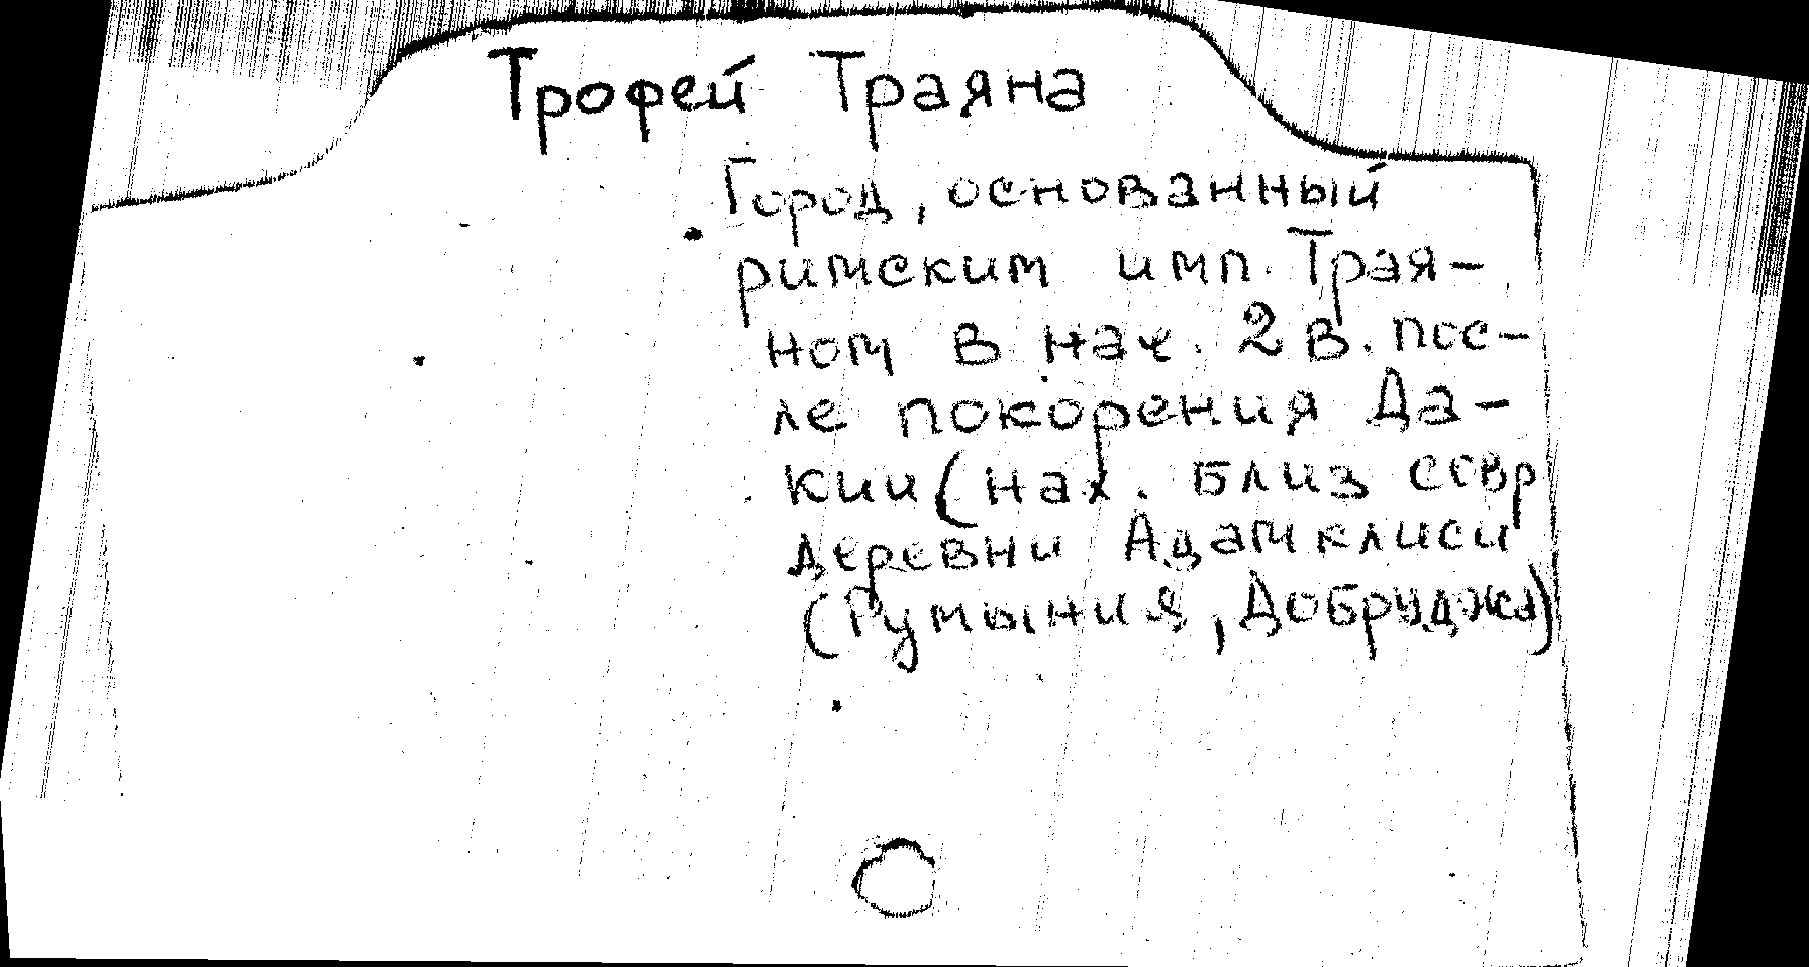 Трофей Траяна
Город, основанный
римским имп. Трая-
ном в нач. 2 в. пос-
ле покорения Да-
кии (нах. близ совр
деревни Адамклиси
(Румыния, Добруджа)